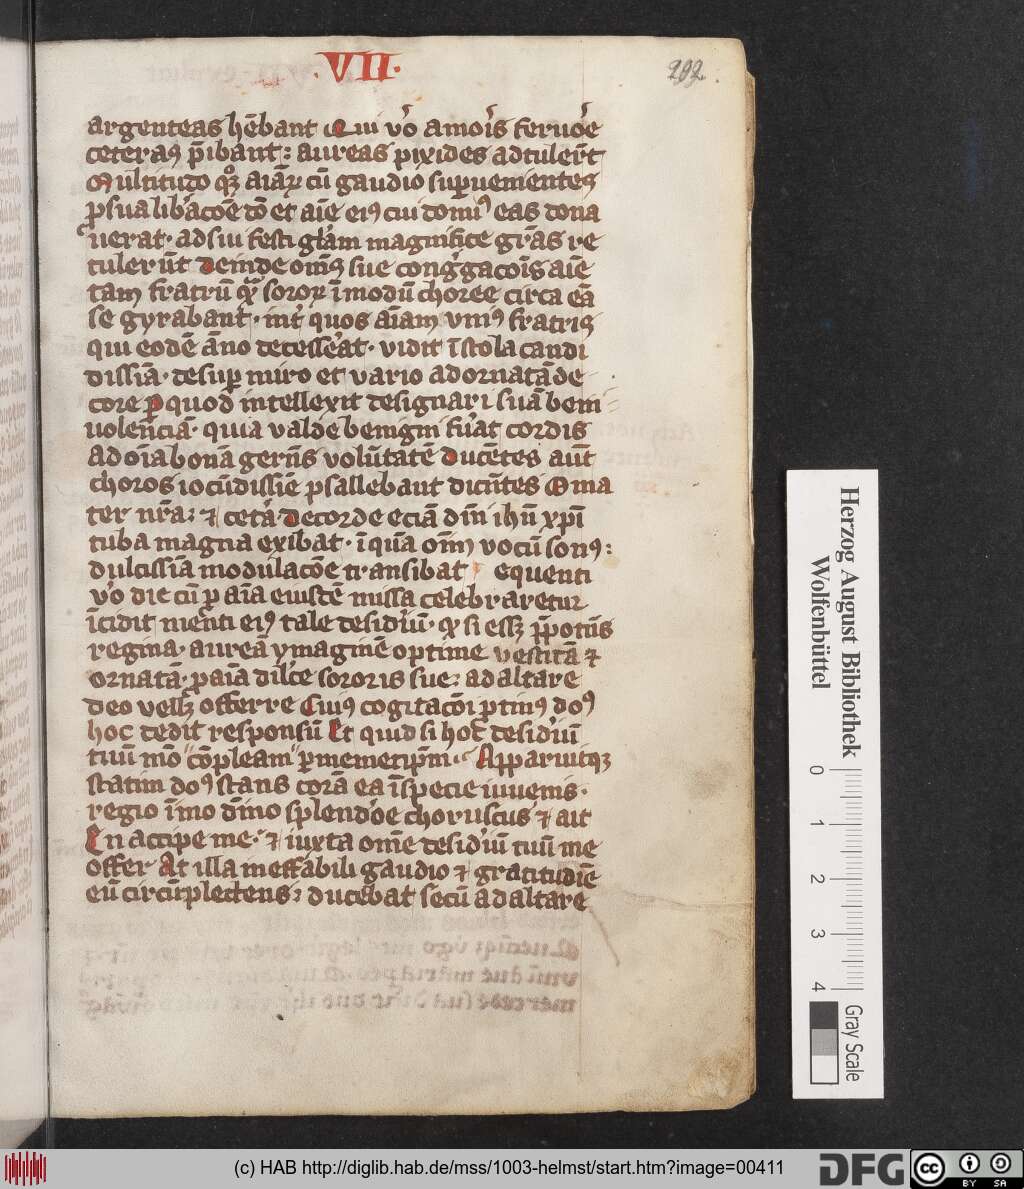 ·VII·
202.
argenteas hēbant Qui vo᷒ amoi᷒s feruo᷒e
ceteraꝰ p̄ibant: aureas pixides adtuler̄t
Multitudo qꝫ aīaꝝ cū gaudio supuenientes
ꝓ sua libac̄oē dō et aīe eiꝰ cui domīꝰ eas dona
uerat· ad sui festi glām magnifice grās re
tulerūt deinde om̄s sue congͣgacoīs aīe
tam fratrū qͣ soroꝝ ī modū choree circa eā
se gyrabant· int̄ quos aīam vniꝰ fratris
qui eodē āno decesse᷒at· vidit ī stola candi
dissīa· desup miro et vario adornatā de
core ꝑ quod intellexit designari suā beni
uolenciā· quia valde benigni fu᷒at cordis
ad oīa bona gerēs volūtatē ducētes aūt
choros iocūdissīe psallebant dicūtes O ma
ter nr̄a: ⁊ ceta᷒ de corde eciā dn̄i ihū xp̄i
tuba magna exibat· ī qua om̄ vocū sonꝰ:
dulcissīa modulac̄oē transibat equenti
vo᷒ die cū ꝑ aīa eiusdē missa celebraretur
īcidit menti eiꝰ tale desidi᷒ū· qͥ si essꝫ p̄potēs
regina· aureā ymaginē optime vestitā ⁊
ornatā· ꝓ aīa dilc̄e sororis sue: ad altare
deo vellꝫ offerre Cuiꝰ cogitac̄oī ꝓtinꝰ doꝰ
hoc dedit responsū Et quid si hoc desidi᷒ū
tuū mō cōpleam ꝑ memetip̄m Apparuitqꝫ
statim doꝰ stans corā ea ī specie iuuenis·
regio īmo dīno splendo᷒e choruscus ⁊ ait
En accipe me· ⁊ iuxta om̄e desidi᷒ū tuū me
offer At illa ineffabili gaudio ⁊ gratitudīe
eū circūplectens: ducebat secū ad altare
Herzog August Bibliothek
Wolfenbüttel
0 1 2 3 4
Gray Scale
(c) HAB http://diglib.hab.de/mss/1003-helmst/start.htm?image=00411
DFG
cc
BY SA